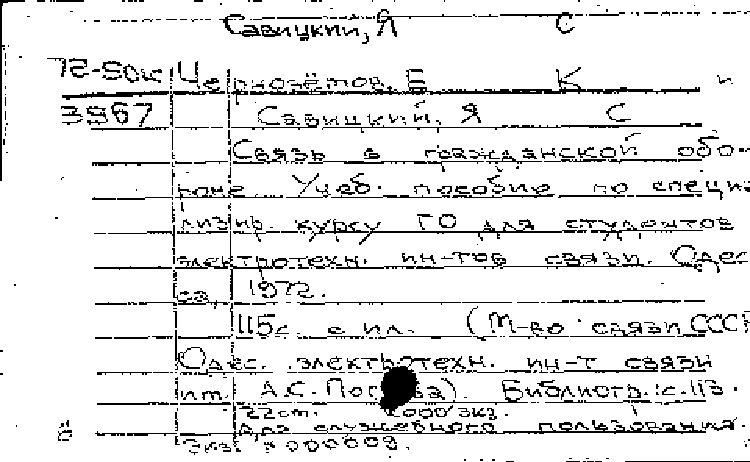 Савицкий, Я С
72-5сик Чернозётов, Б К и
3967 Савицкий, Я С
Связь в гражданской обо-
роне. Учеб. пособие по специа
лизир. курсу ГО для студентов
электротехн. ин-тов связи. Одес
са, 1972.
115с. с ил. (М-во связи СССР
Одес. электротехн. ин-т связи
им. А.С. Попова). Библиогр.: с. 113.
22см. 1000 экз.
Для служебного пользования.
Экз. № 000009.